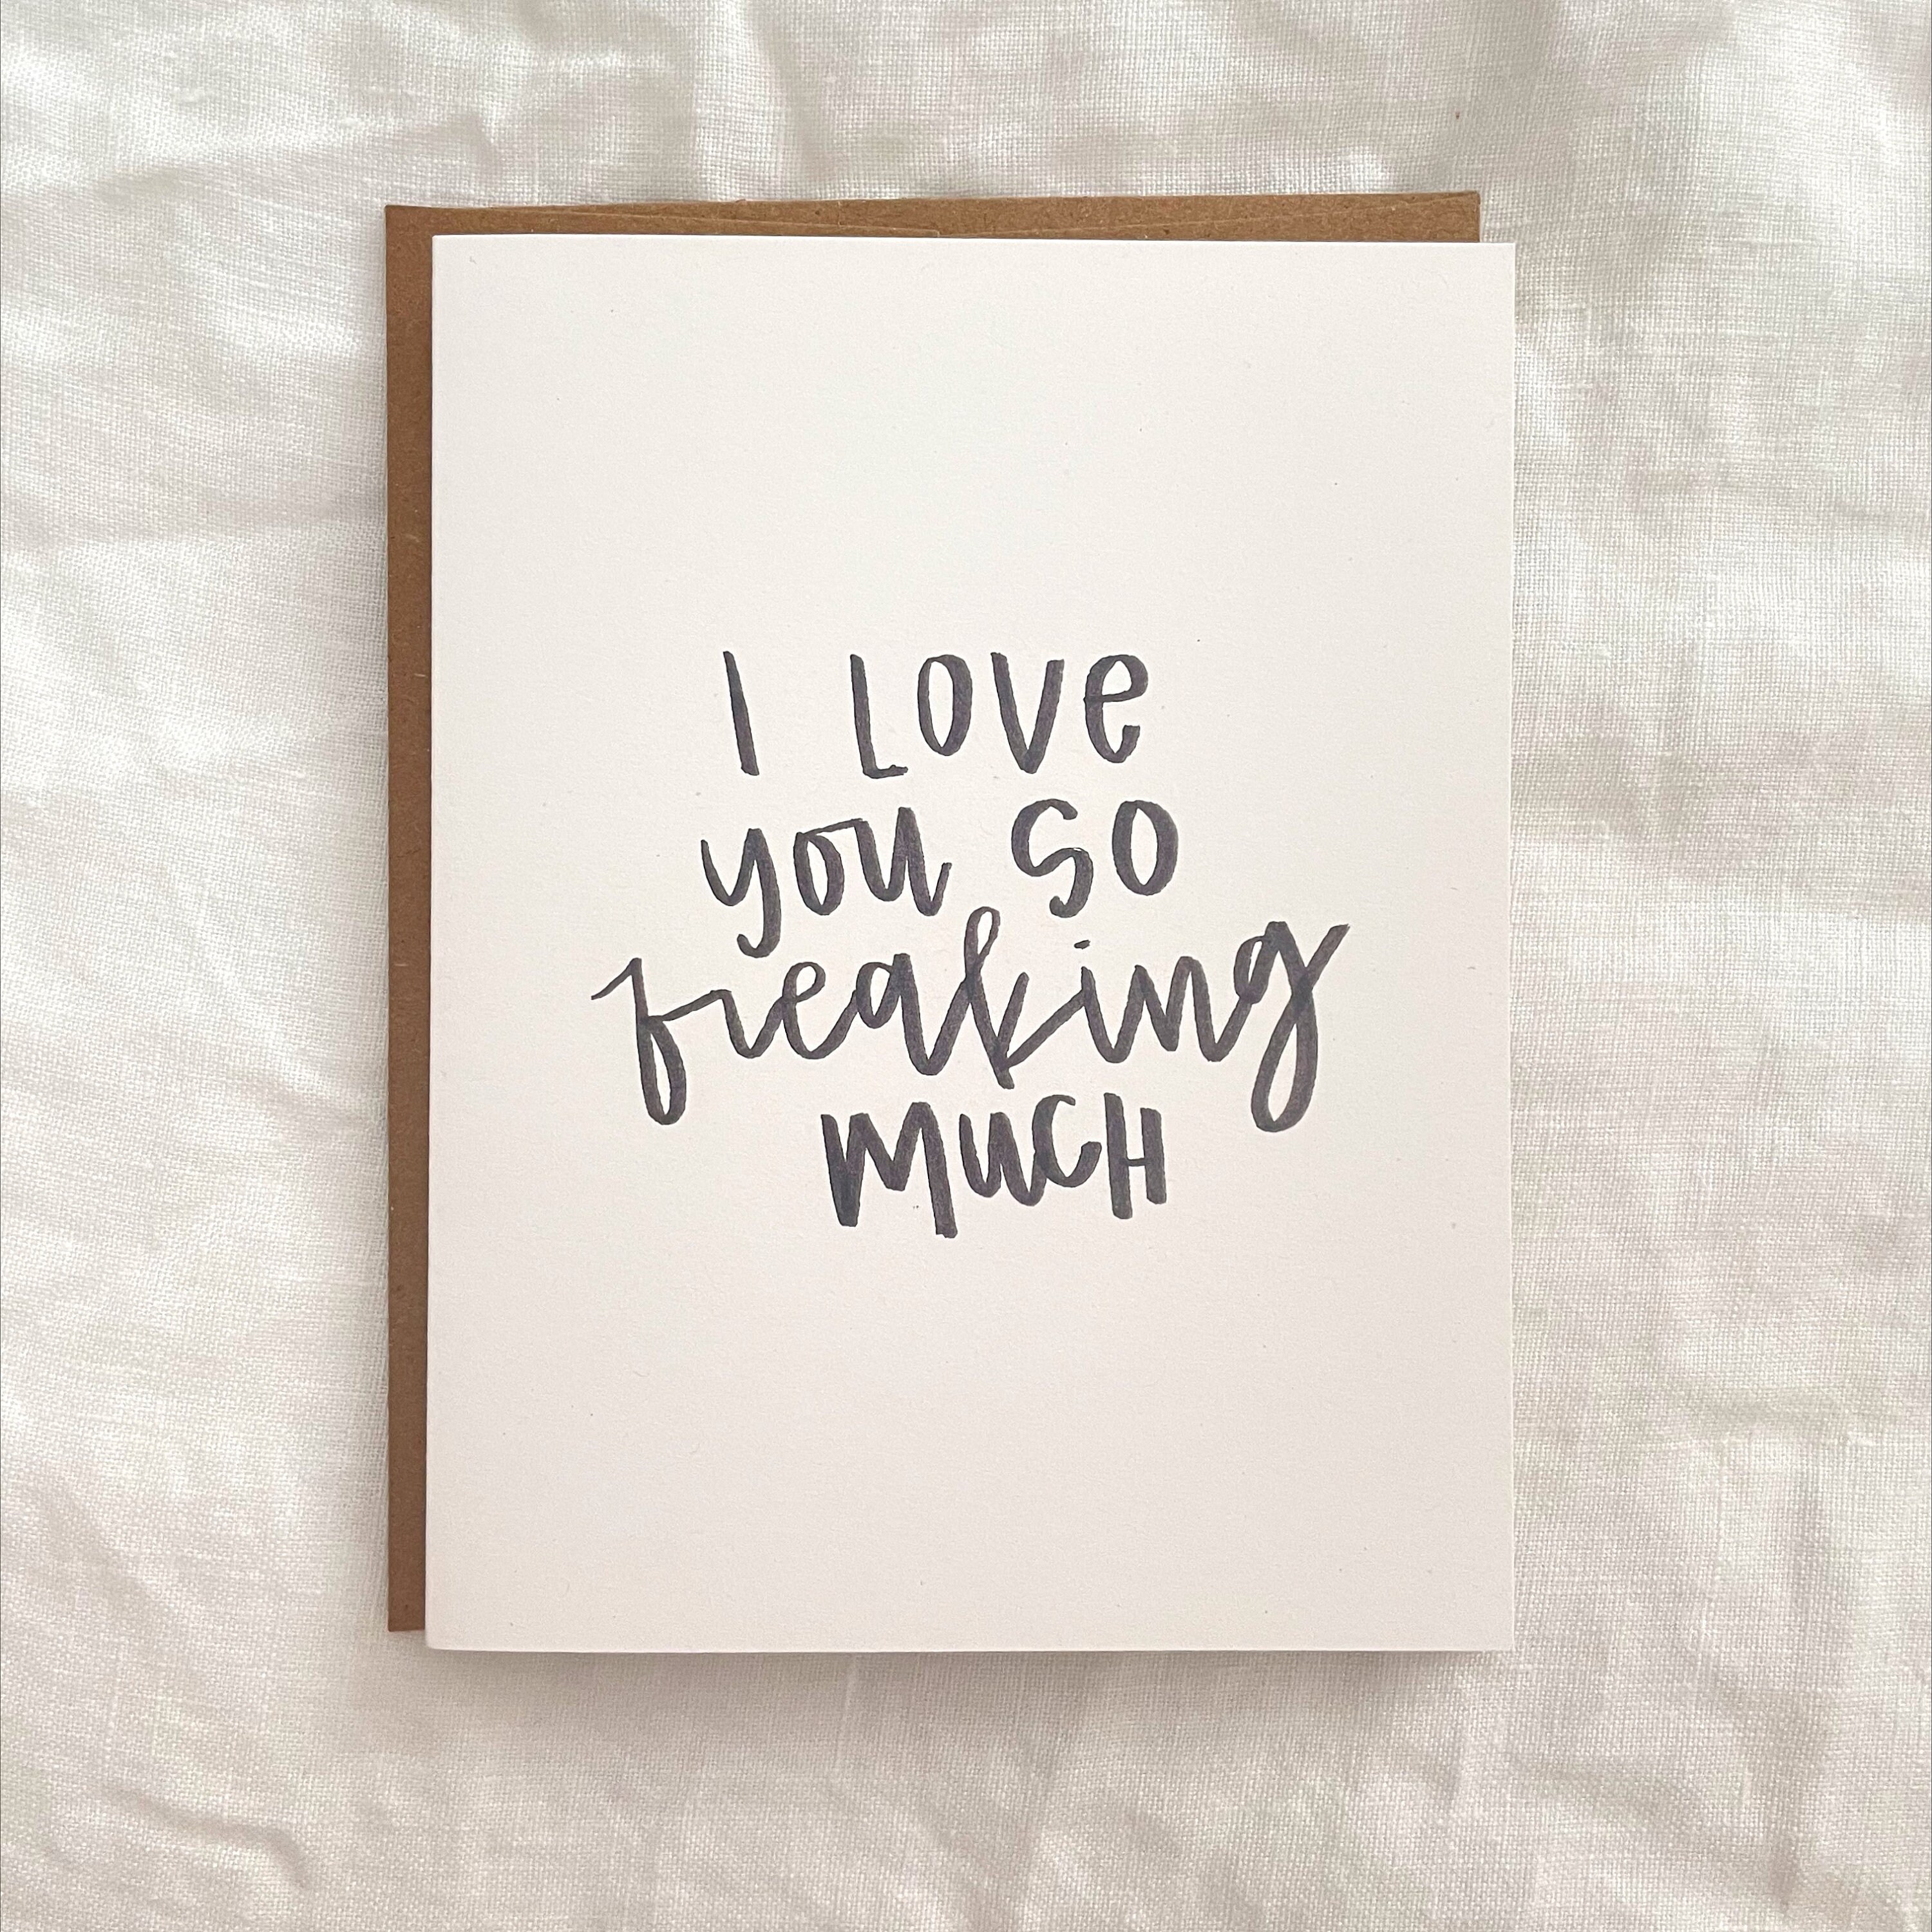 I LOVE
you so
freaking
MUCH